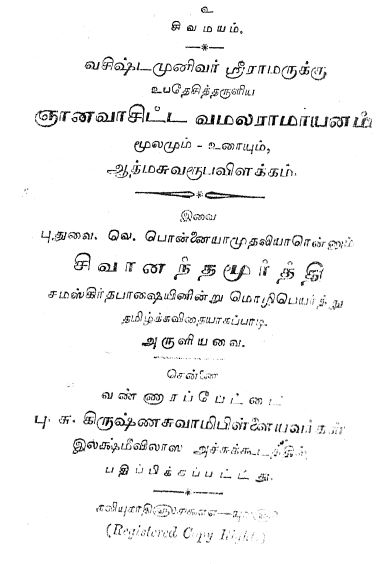 உ
சிவமயம்.
வசிஷ்டமுனிவர் ஸ்ரீராமருக்கு
உபதேசித்தருளிய
ஞானவாசிட்ட வமலராமாயனம்
மூலமும் - உரையும்,
ஆத்மசுவரூபவிளக்கம்.
இவை
புதுவை. வெ. பொன்னையாமுதலியாரென்னும்
சிவானந்தமூர்த்தி
சமஸ்கிர்தபாஷையினின்று மொழிபெயர்த்து
தமிழ்க்கவிதையாகப்பாடி
அருளியவை.
சென்னை
வண்ணாரப்பேட்டை
பு. சு. கிருஷ்ணசுவாமிபிள்ளையவர்கள்
இலக்ஷ்மீவிலாஸ அச்சுக்கூடத்தில்
பதிப்பிக்கப்பட்டது.
(Registered Copy Right.)